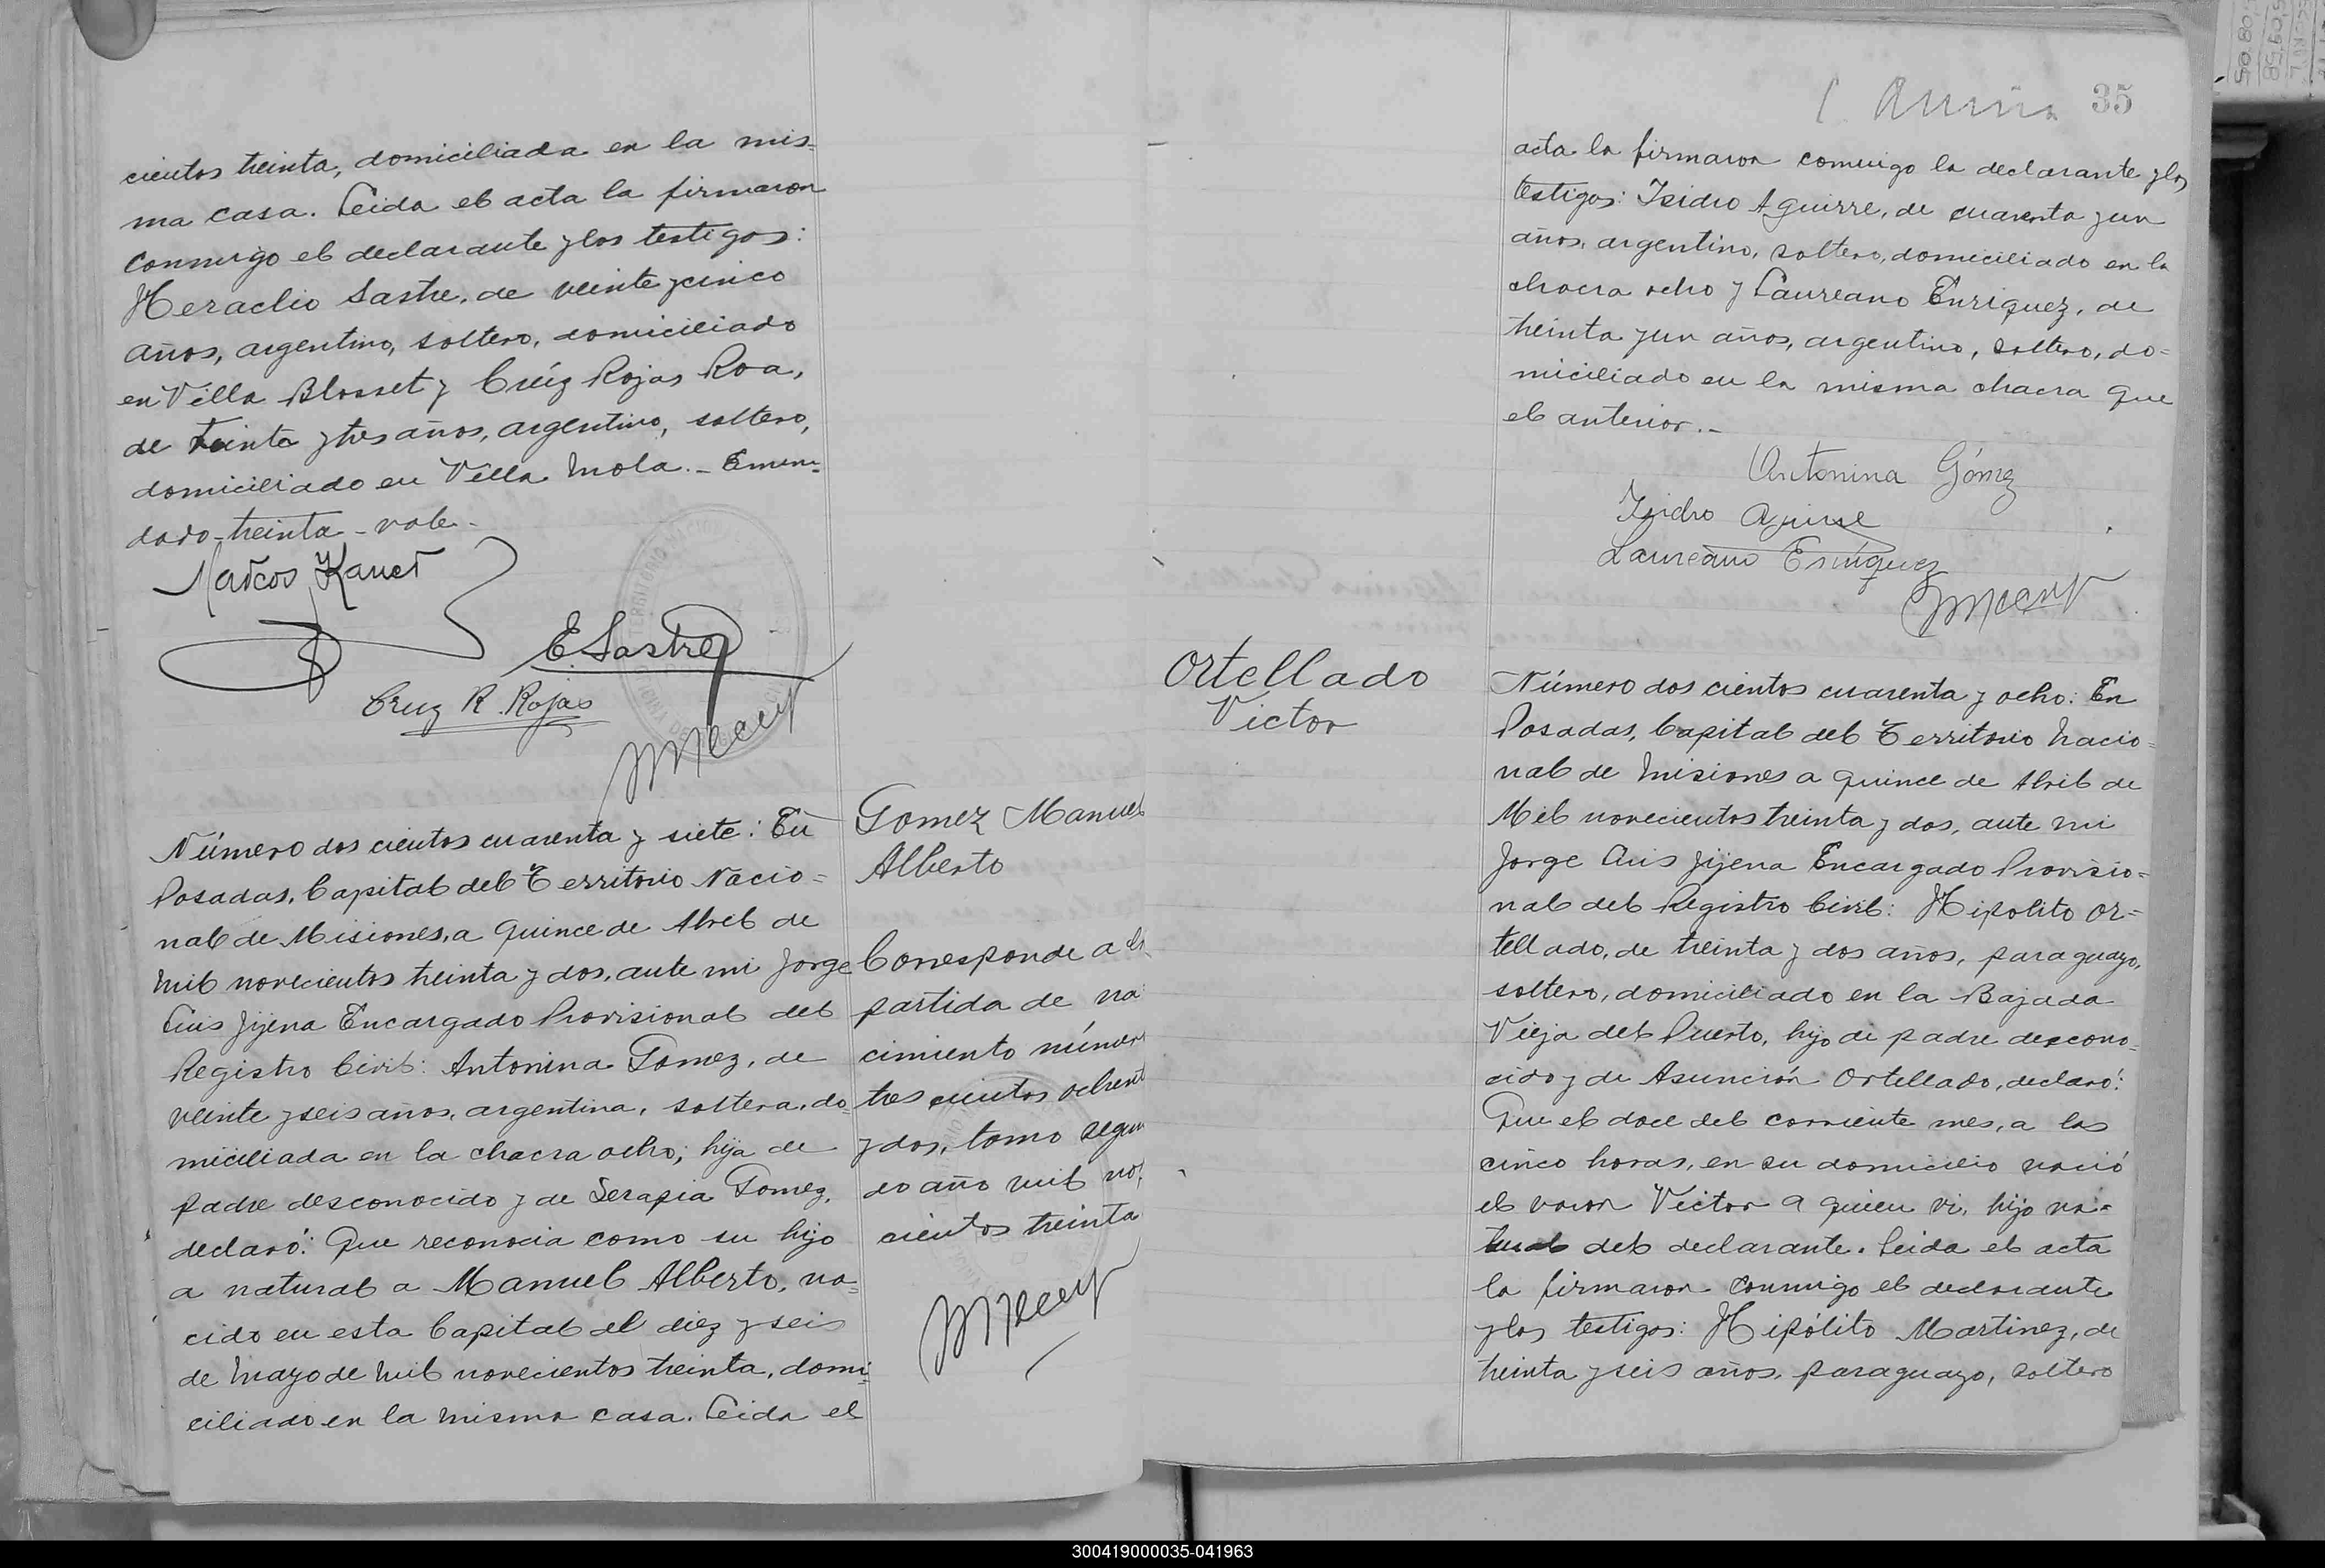 cientos treinta, domiciliada en la mis=
ma casa. Leida el acta la firmaron
conmigo el declarante y los testigos:
Heraclio Sastre, de veinte y cinco
años, argentino, soltero, domiciliado
en Villa Blosset y Crúz Rojas Roa,
de treinta y tres años, argentino, soltero,
domiciliado en Villa Mola.- Emen=
dado-treinta-vale.-
Marcos Kanet
E. Sastre
Cruz R. Rojas
Número dos cientos cuarenta y siete: En
Posadas, Capital del Territorio Nacio=
nal de Misiones, a quince de Abril de
Mil novecientos treinta y dos, ante mi Jorge
Luis Jijena Encargado Provisional del
Registro Civil: Antonina Gomez, de
veinte y seis años, argentina, soltera, do=
miciliada en la chacra ocho; hija de
padre desconocido y de Serapia Gomez,
declaró: Que reconocia como su hijo
a natural a Manuel Alberto, na=
cido en esta Capital el diez y seis
de Mayo de Mil novecientos treinta, domi=
ciliado en la misma casa. Leida el
Gomez Manuel
Alberto
Corresponde a la
partida de na
cimiento número
tres cientos ochent
y dos, tomo segun
do año mil no
cientos treinta
35
acta la firmaron conmigo la declarante y los
testigos: Isidro Aguirre, de cuarenta y un
años, argentino, soltero, domiciliado en la
chacra ocho y Laureano Enriquez, de
treinta y un años, argentino, soltero, do=
miciliado en la misma chacra que
el anterior.-
Antonina Gómez
Isidro Aguirre
Laureano Esníquez
Ortellado
Victor
Número dos cientos cuarenta y ocho: En
Posadas, Capital del Territorio Nacio=
nal de Misiones a quince de Abril de
Mil novecientos treinta y dos, ante mi
Jorge Luis Jijena Encargado Provisio=
nal del Registro Civil: Hipolito Or=
tellado, de treinta y dos años, paraguayo,
soltero, domiciliado en la Bajada
Vieja del Puerto, hijo de padre descono=
cido y de Asunción Ortellado, declaró:
Que el doce del corriente mes, a las
cinco horas, en su domicilio nació
el varon Victor a quien vi, hijo na=
tural del declarante. Leida el acta
la firmaron conmigo el declarante
y los testigos: Hipólito Martinez, de
treinta y seis años, paraguayo, soltero
300419000035-041963